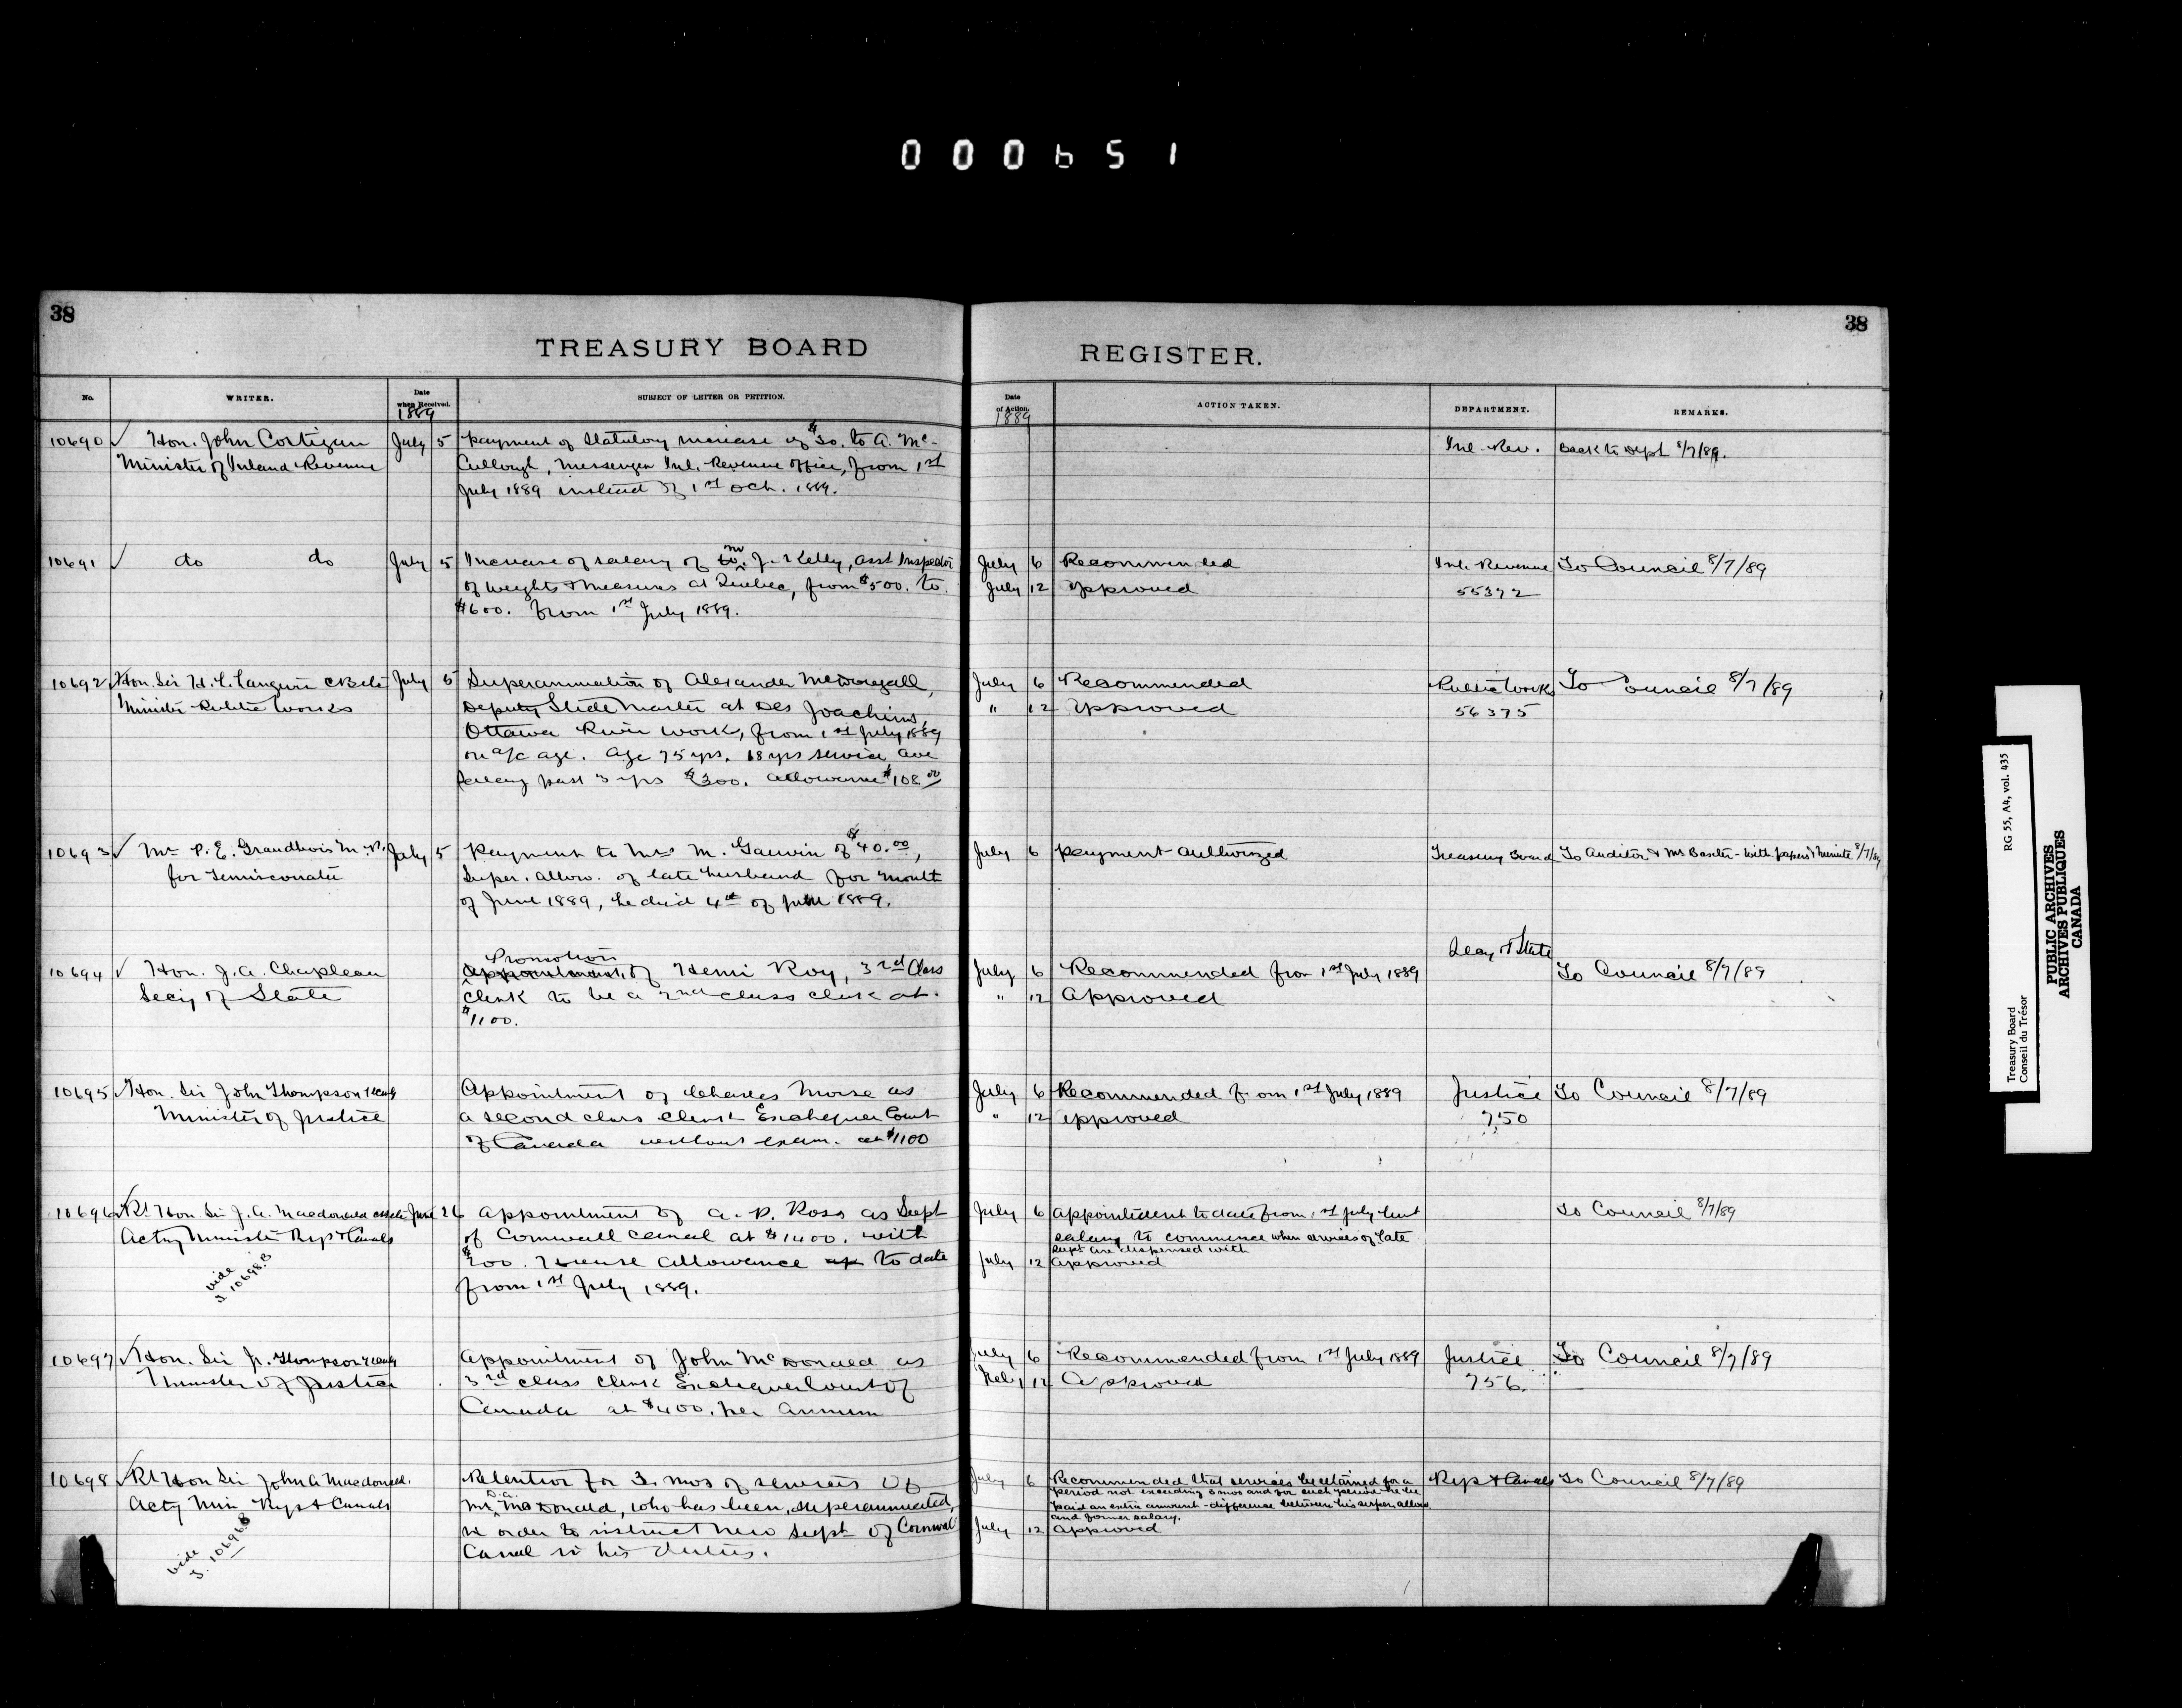 000651
38
TREASURY BOARD
No.
WRITER.
Date when Received.
1889
SUBJECT OF LETTER OR PETITION.
10690 Hon. John Costigan July 5 Payment of Statutory increase of $30. to A. Mc-
Minister of Inland Revenue Cullough, Messenger Inl. Revenue Office, from 1st
July 1889 instead of 1st Oct. 1889.
10691 do do July 5 Increase of salary of Mr J. Kelly, asst Inspector
of Weights & Measures at Quebec, from $500. to
$600. from 1st July 1889.
10692 Hon. Sir H. L. Langevin July 5 Superannuation of Alexander McDougall,
Minister Public Works Deputy Slide Master at Des Joachims,
Ottawa River Work, from 1st July 1889
on a/c age. Age 75 yrs, 18 yrs service, ave
salary past 3 yrs $300. Allowance $108 00
10693 Mr P. E. Grandbois M.P. July 5 Payment to Mrs M. Gauvin of $40.00,
for Temisconata Super. allow. of late husband for month
of June 1889, he died 4th of June 1889.
10694 Hon. J. A. Chapleau Promotion
Secy of State Appointment of Henri Roy, 3rd Class
Clerk to be a 2nd class clerk at
$1100.
10695 Hon. Sir John Thompson Appointment of Charles Morse as
Minister of Justice a second class Clerk Exchequer Court
of Canada without exam. at $1100
10696 Rt Hon Sir J. A. Macdonald June 26 Appointment of A. P. Ross as Supt
Actng Minister Rys & Canals of Cornwall Canal at $1400. with
$200. House allowance to date
from 1st July 1889.
vide
10698.B
10697 Hon. Sir J. Thompson Appointment of John McDonald as
Minister of Justice 3rd class Clerk Exchequer Court of
Canada at $400. per annum
10698 Rt Hon Sir John A Macdonald. Retention for 3 mos of services of
Actg Min Rys & Canals Mr D.A. McDonald, who has been superannuated,
in order to instruct new Supt of Cornwall
Canal in his duties.
vide
10696B
38
REGISTER.
Date of Action.
1889
ACTION TAKEN.
DEPARTMENT.
REMARKS.
Inl. Rev. Back to Dept 8/7/89.
July 6 Recommended Inl. Revenue To Council 8/7/89
July 12 Approved 55372
July 6 Recommended Public Works To Council 8/7/89
" 12 Approved 56375
July 6 Payment authorized Treasury Board To Auditor & Mr Baxter - with papers & Minute 8/7/89
Secy of State
July 6 Recommended from 1st July 1889 To Council 8/7/89
" 12 Approved
July 6 Recommended from 1st July 1889 Justice To Council 8/7/89
" 12 Approved 750
July 6 Appointment to date from 1st July but To Council 8/7/89
salary to commence when services of late
Supt are dispensed with
July 12 Approved
July 6 Recommended from 1st July 1889 Justice To Council 8/7/89
12 Approved 756.
July 6 Recommended that services be retained for a Rys & Canals To Council 8/7/89
period not exceeding 3 mos and for such period he be
paid an extra amount - difference between his super. allow.
and former salary.
July 12 Approved
Treasury Board
Conseil du Trésor
RG 55, A4, vol. 435
PUBLIC ARCHIVES
ARCHIVES PUBLIQUES
CANADA